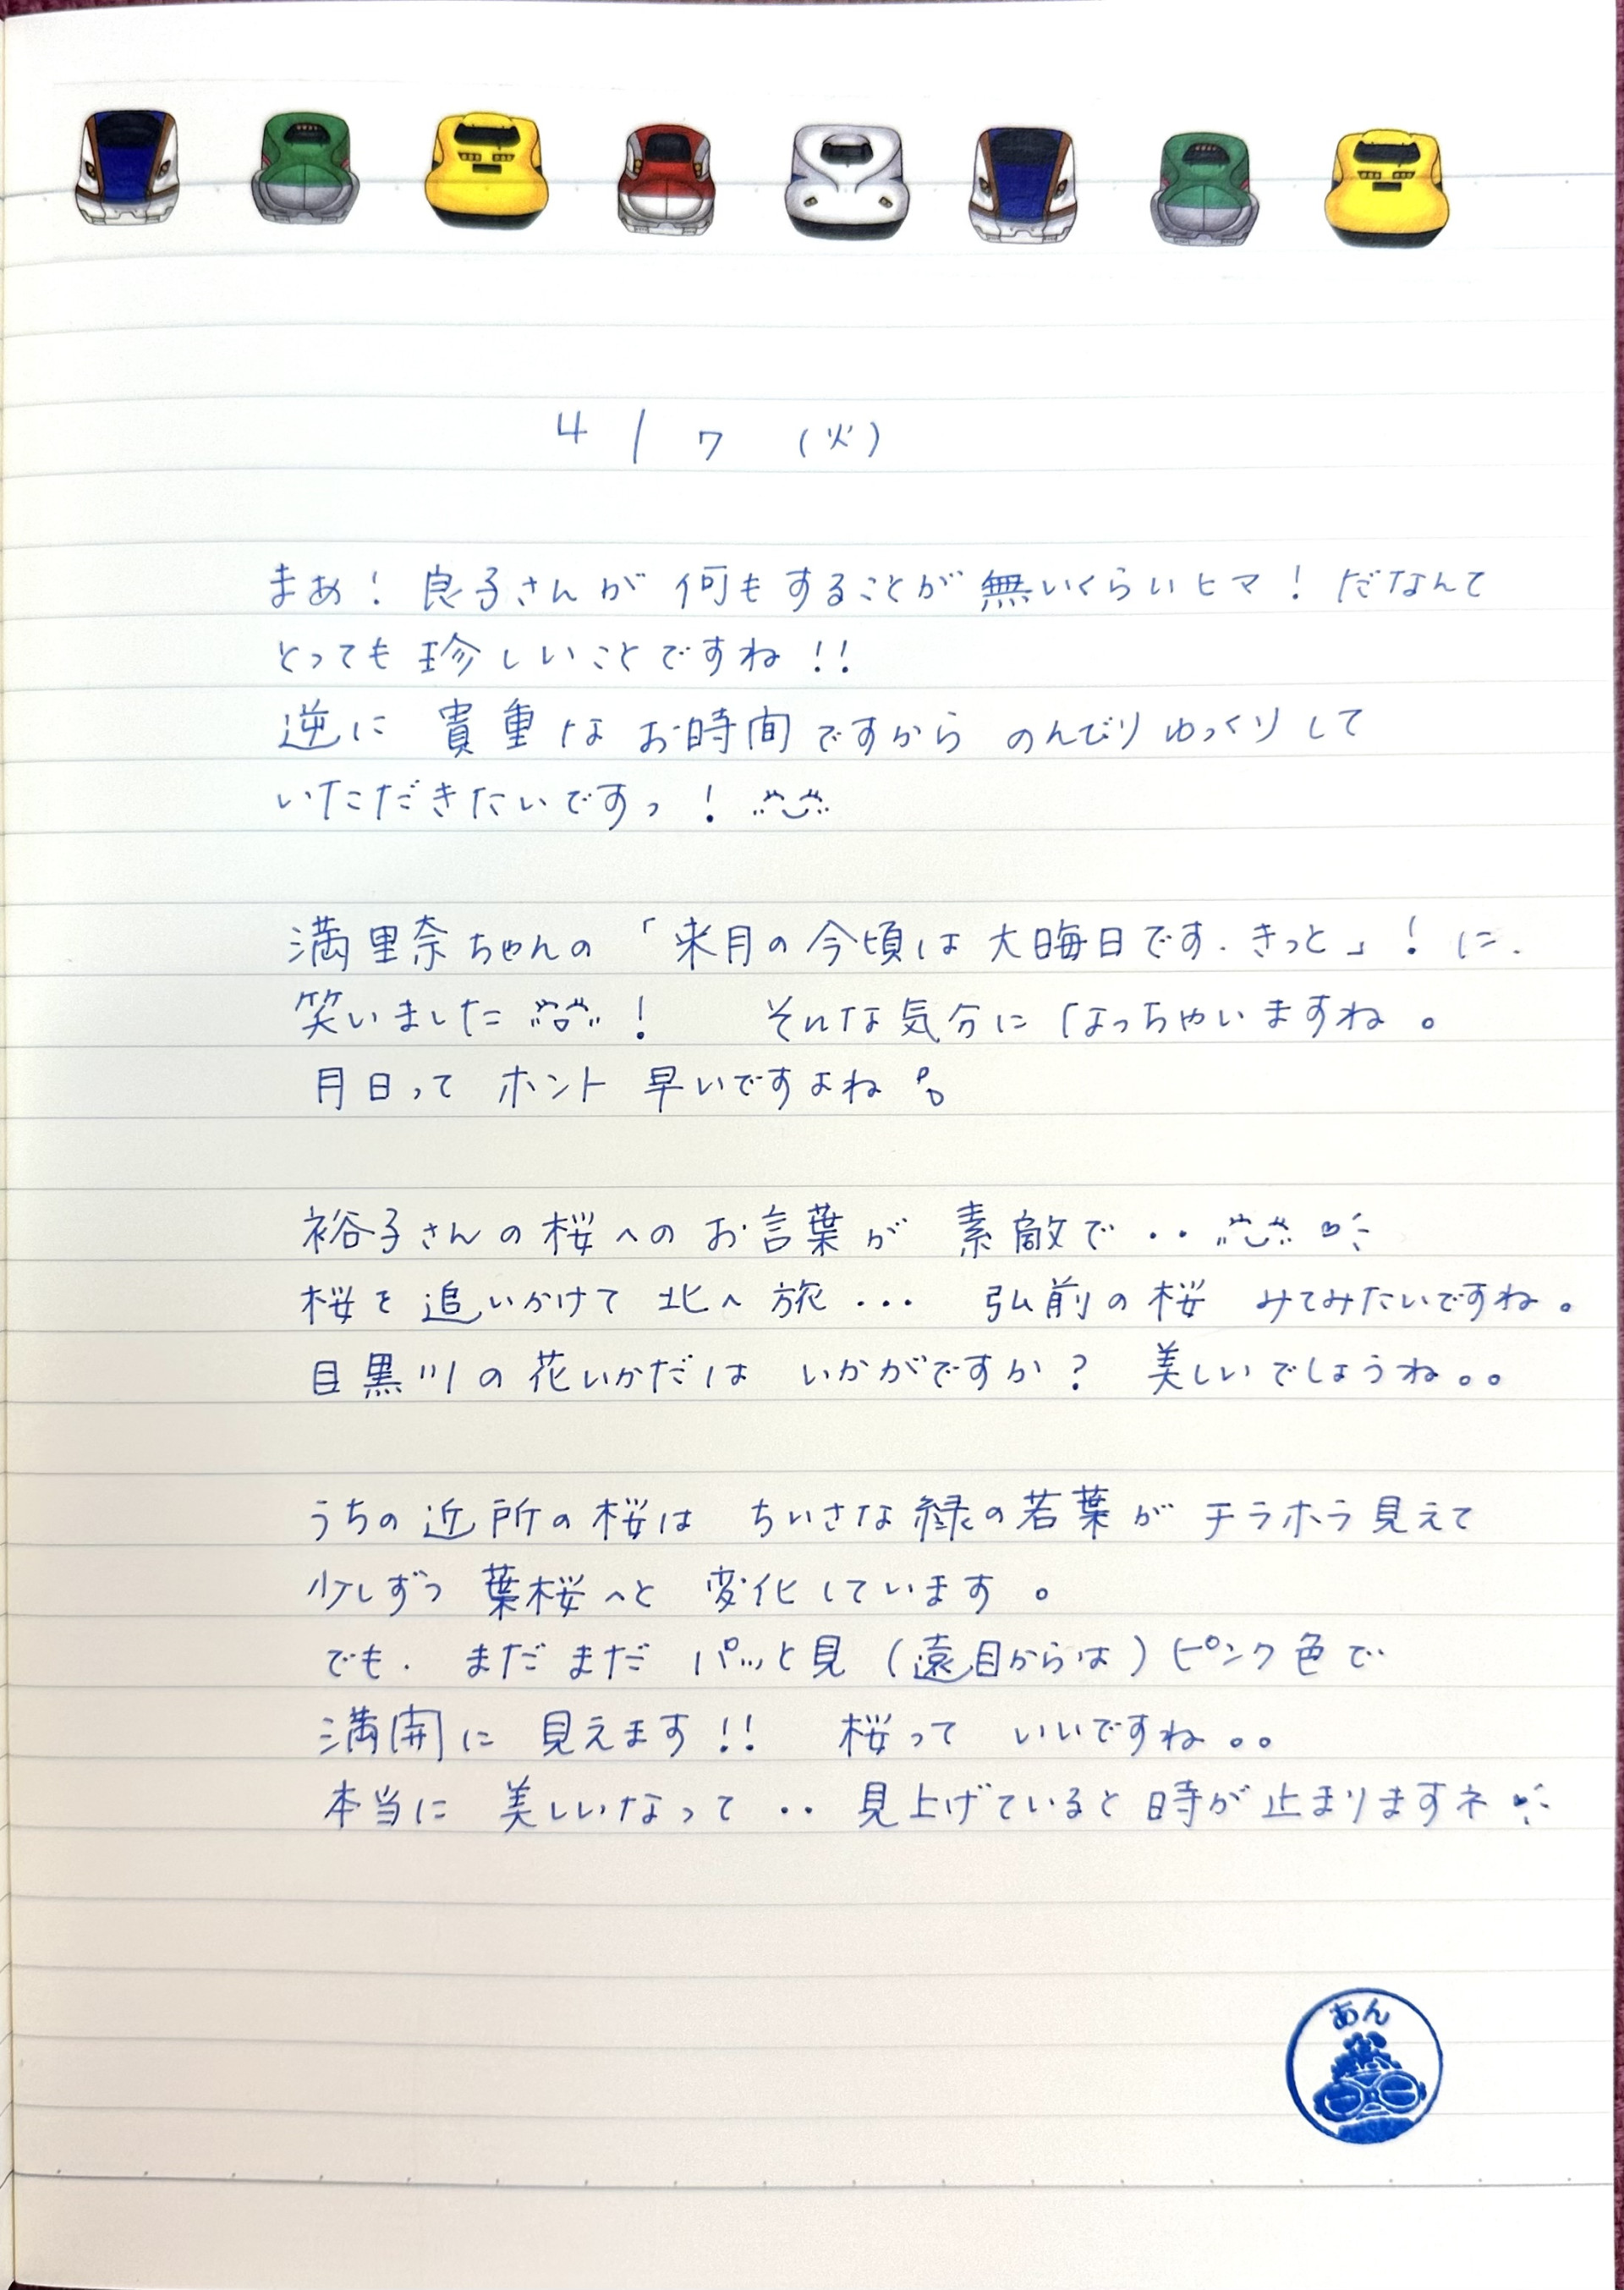 4/7(火)
まあ！良子さんが何もすることが無いくらいヒマ！だなんて
とっても珍しいことですね!!
逆に貴重なお時間ですからのんびりゆっくりして
いただきたいですっ！
満里奈ちゃんの「来月の今頃は大晦日です.きっと」！に.
笑いました！ それな気分になっちゃいますね。
月日ってホント早いですよね
裕子さんの桜へのお言葉が素敵で‥
桜を追いかけて北へ旅… 弘前の桜 みてみたいですね。
目黒川の花いかだは いかがですか？ 美しいでしょうね。。
うちの近所の桜は ちいさな緑の若葉がチラホラ見えて
少しずつ葉桜へと変化しています。
でも. まだまだ パッと見（遠目からは）ピンク色で
満開に見えます!! 桜って いいですね。。
本当に 美しいなって‥ 見上げていると時が止まりますネ
あん